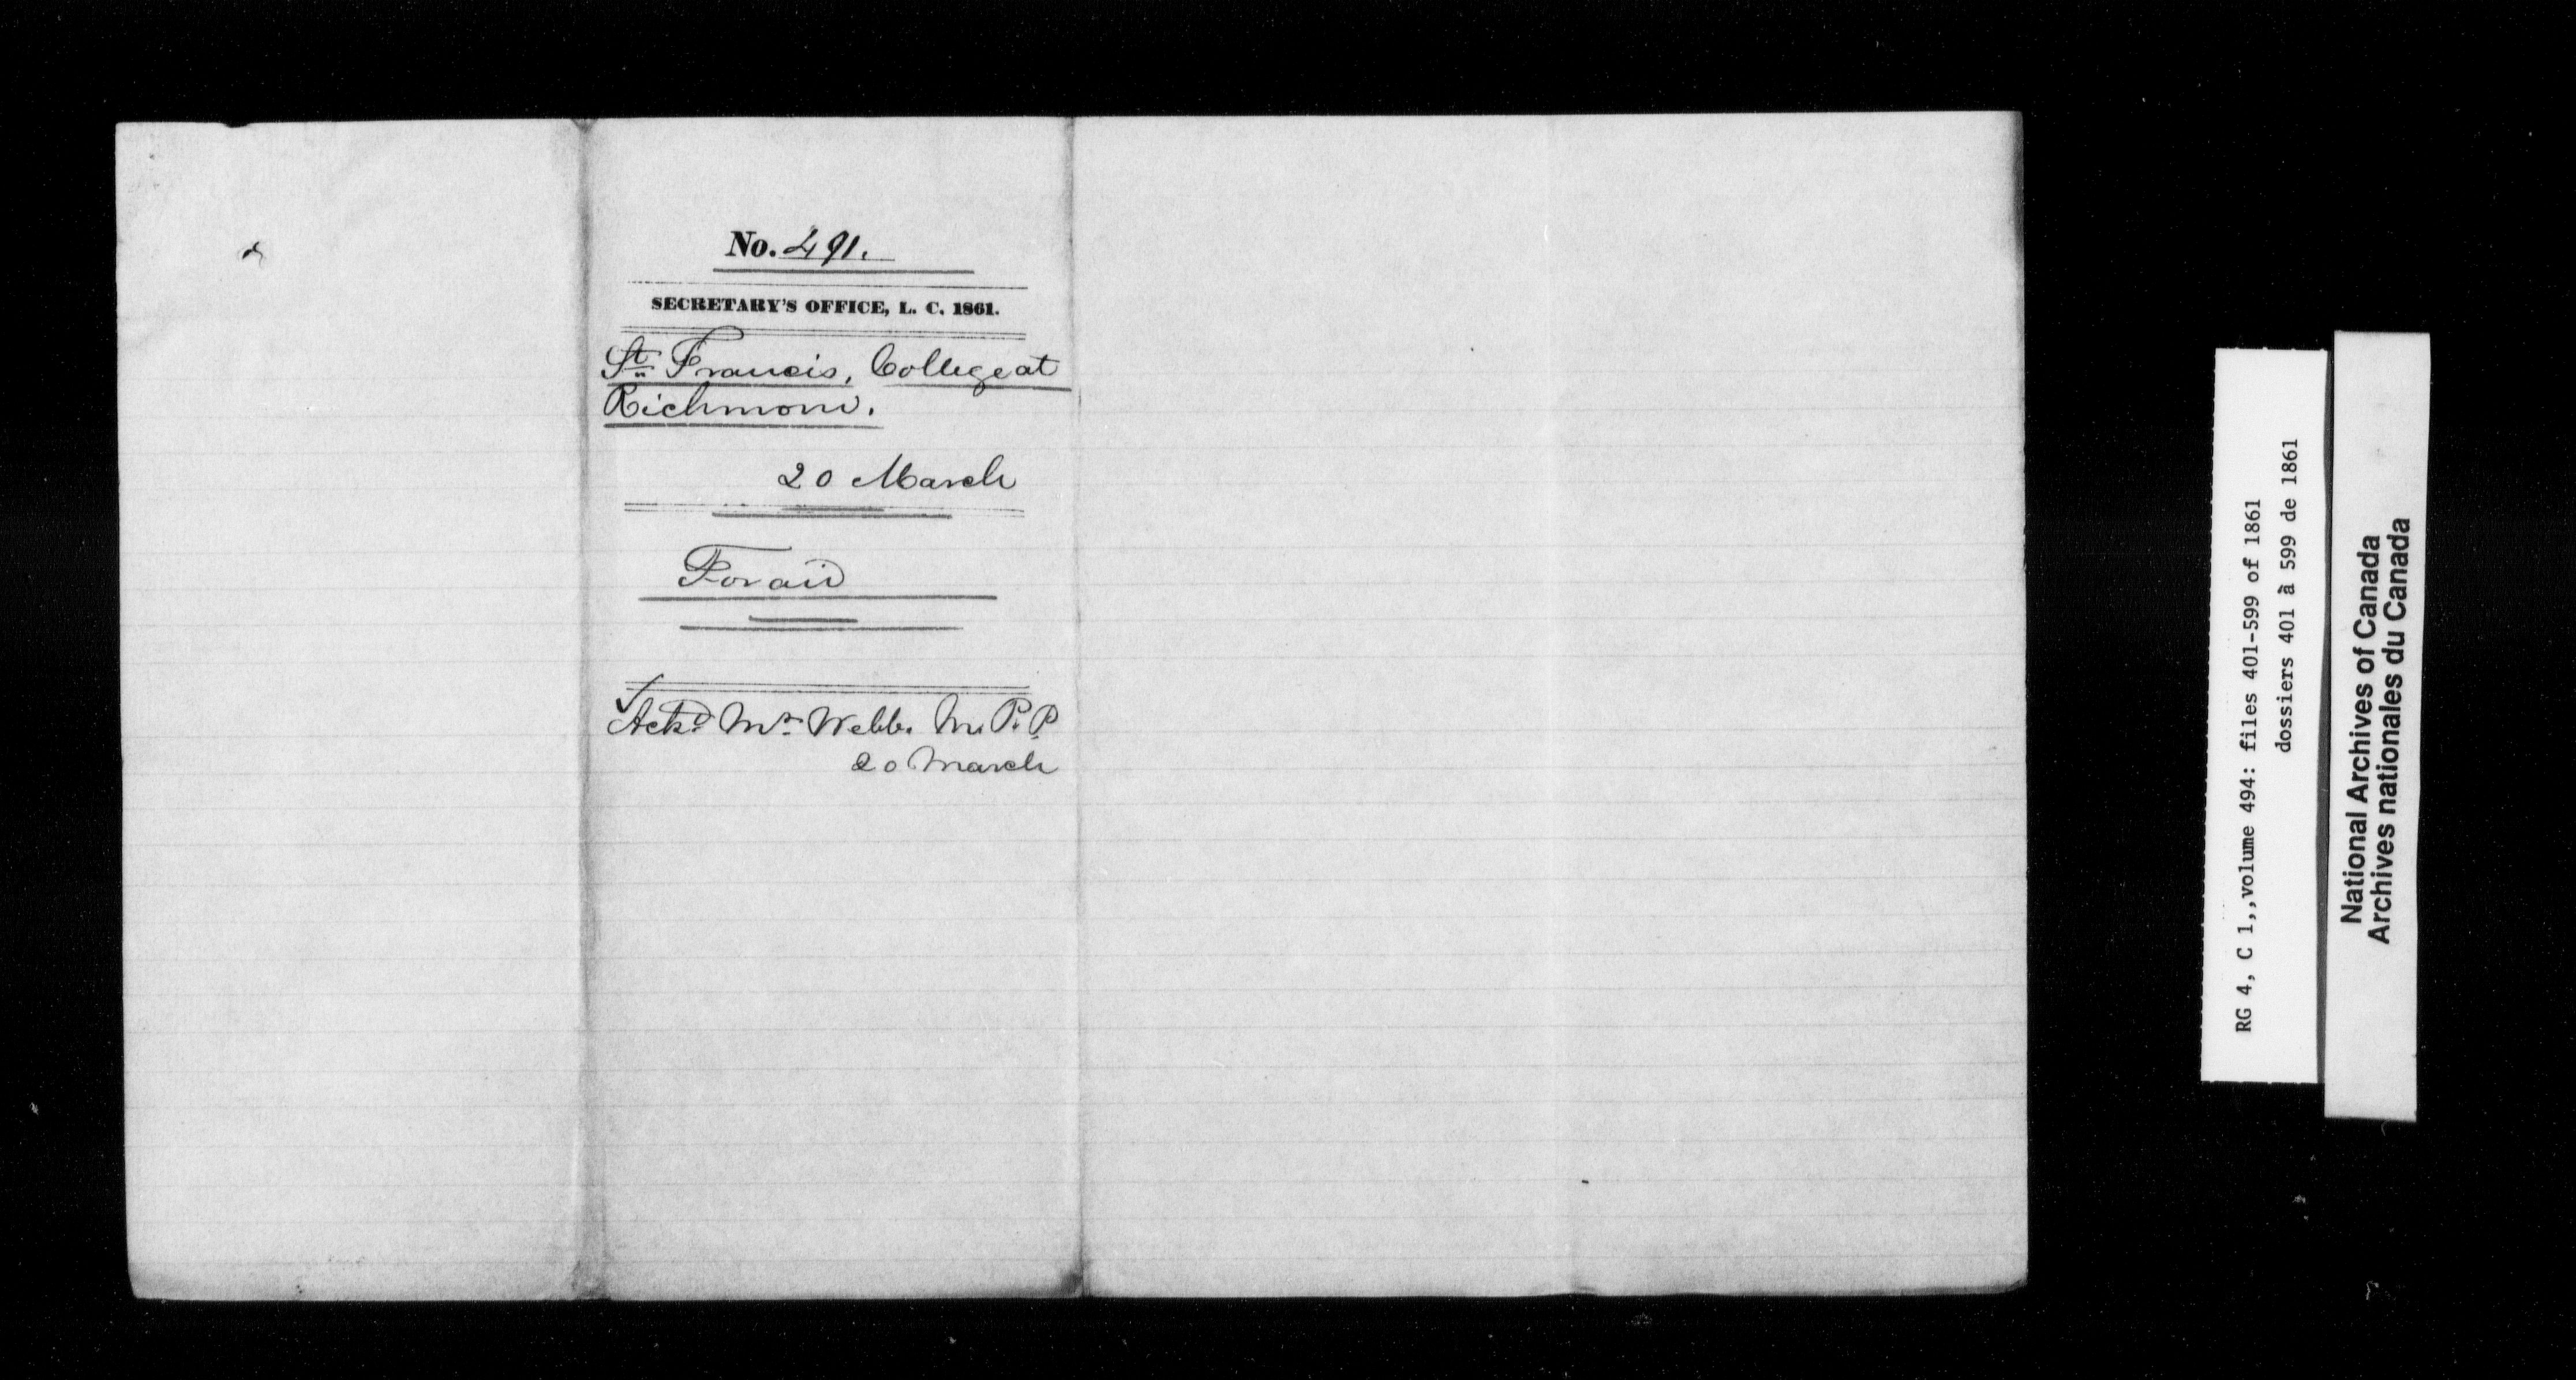 No. 491.
SECRETARY'S OFFICE, L. C. 1861.
St. Francis, College at
Richmond.
20 March
For aid
Ackd Mr. Webb. M. P. P.
20 March
RG 4, C 1,,volume 494: files 401-599 of 1861
dossiers 401 à 599 de 1861
National Archives of Canada
Archives nationales du Canada